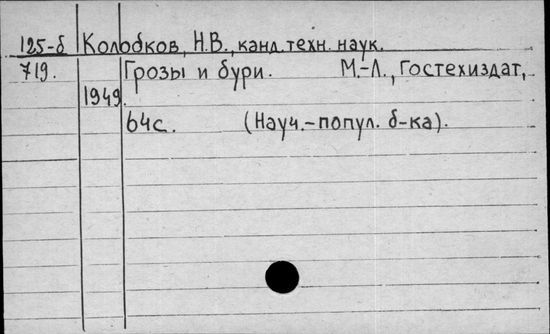 125-б Колобков, Н.В., канд. техн. наук.
719. Грозы и бури. М.-Л., Гостехиздат,
1949.
64с. (Науч.-попул. б-ка).